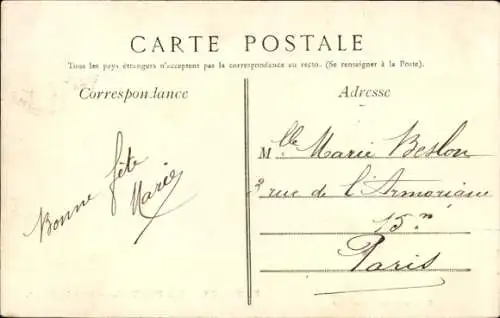 CARTE POSTALE
Tous les pays étrangers n'acceptent pas la correspondance au recto. (Se renseigner à la Poste).
Correspondance
Adresse
Bonne fête
Marie
Mlle Marie Beslon
2 rue de l'Armorique
15e
Paris